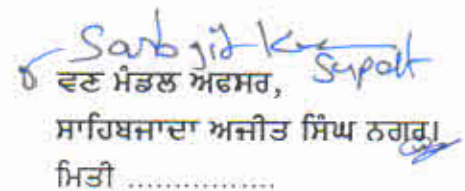 Sarbjit Kur
Supdt
ਵਣ ਮੰਡਲ ਅਫਸਰ,
ਸਾਹਿਬਜਾਦਾ ਅਜੀਤ ਸਿੰਘ ਨਗਰ।
ਮਿਤੀ ...............